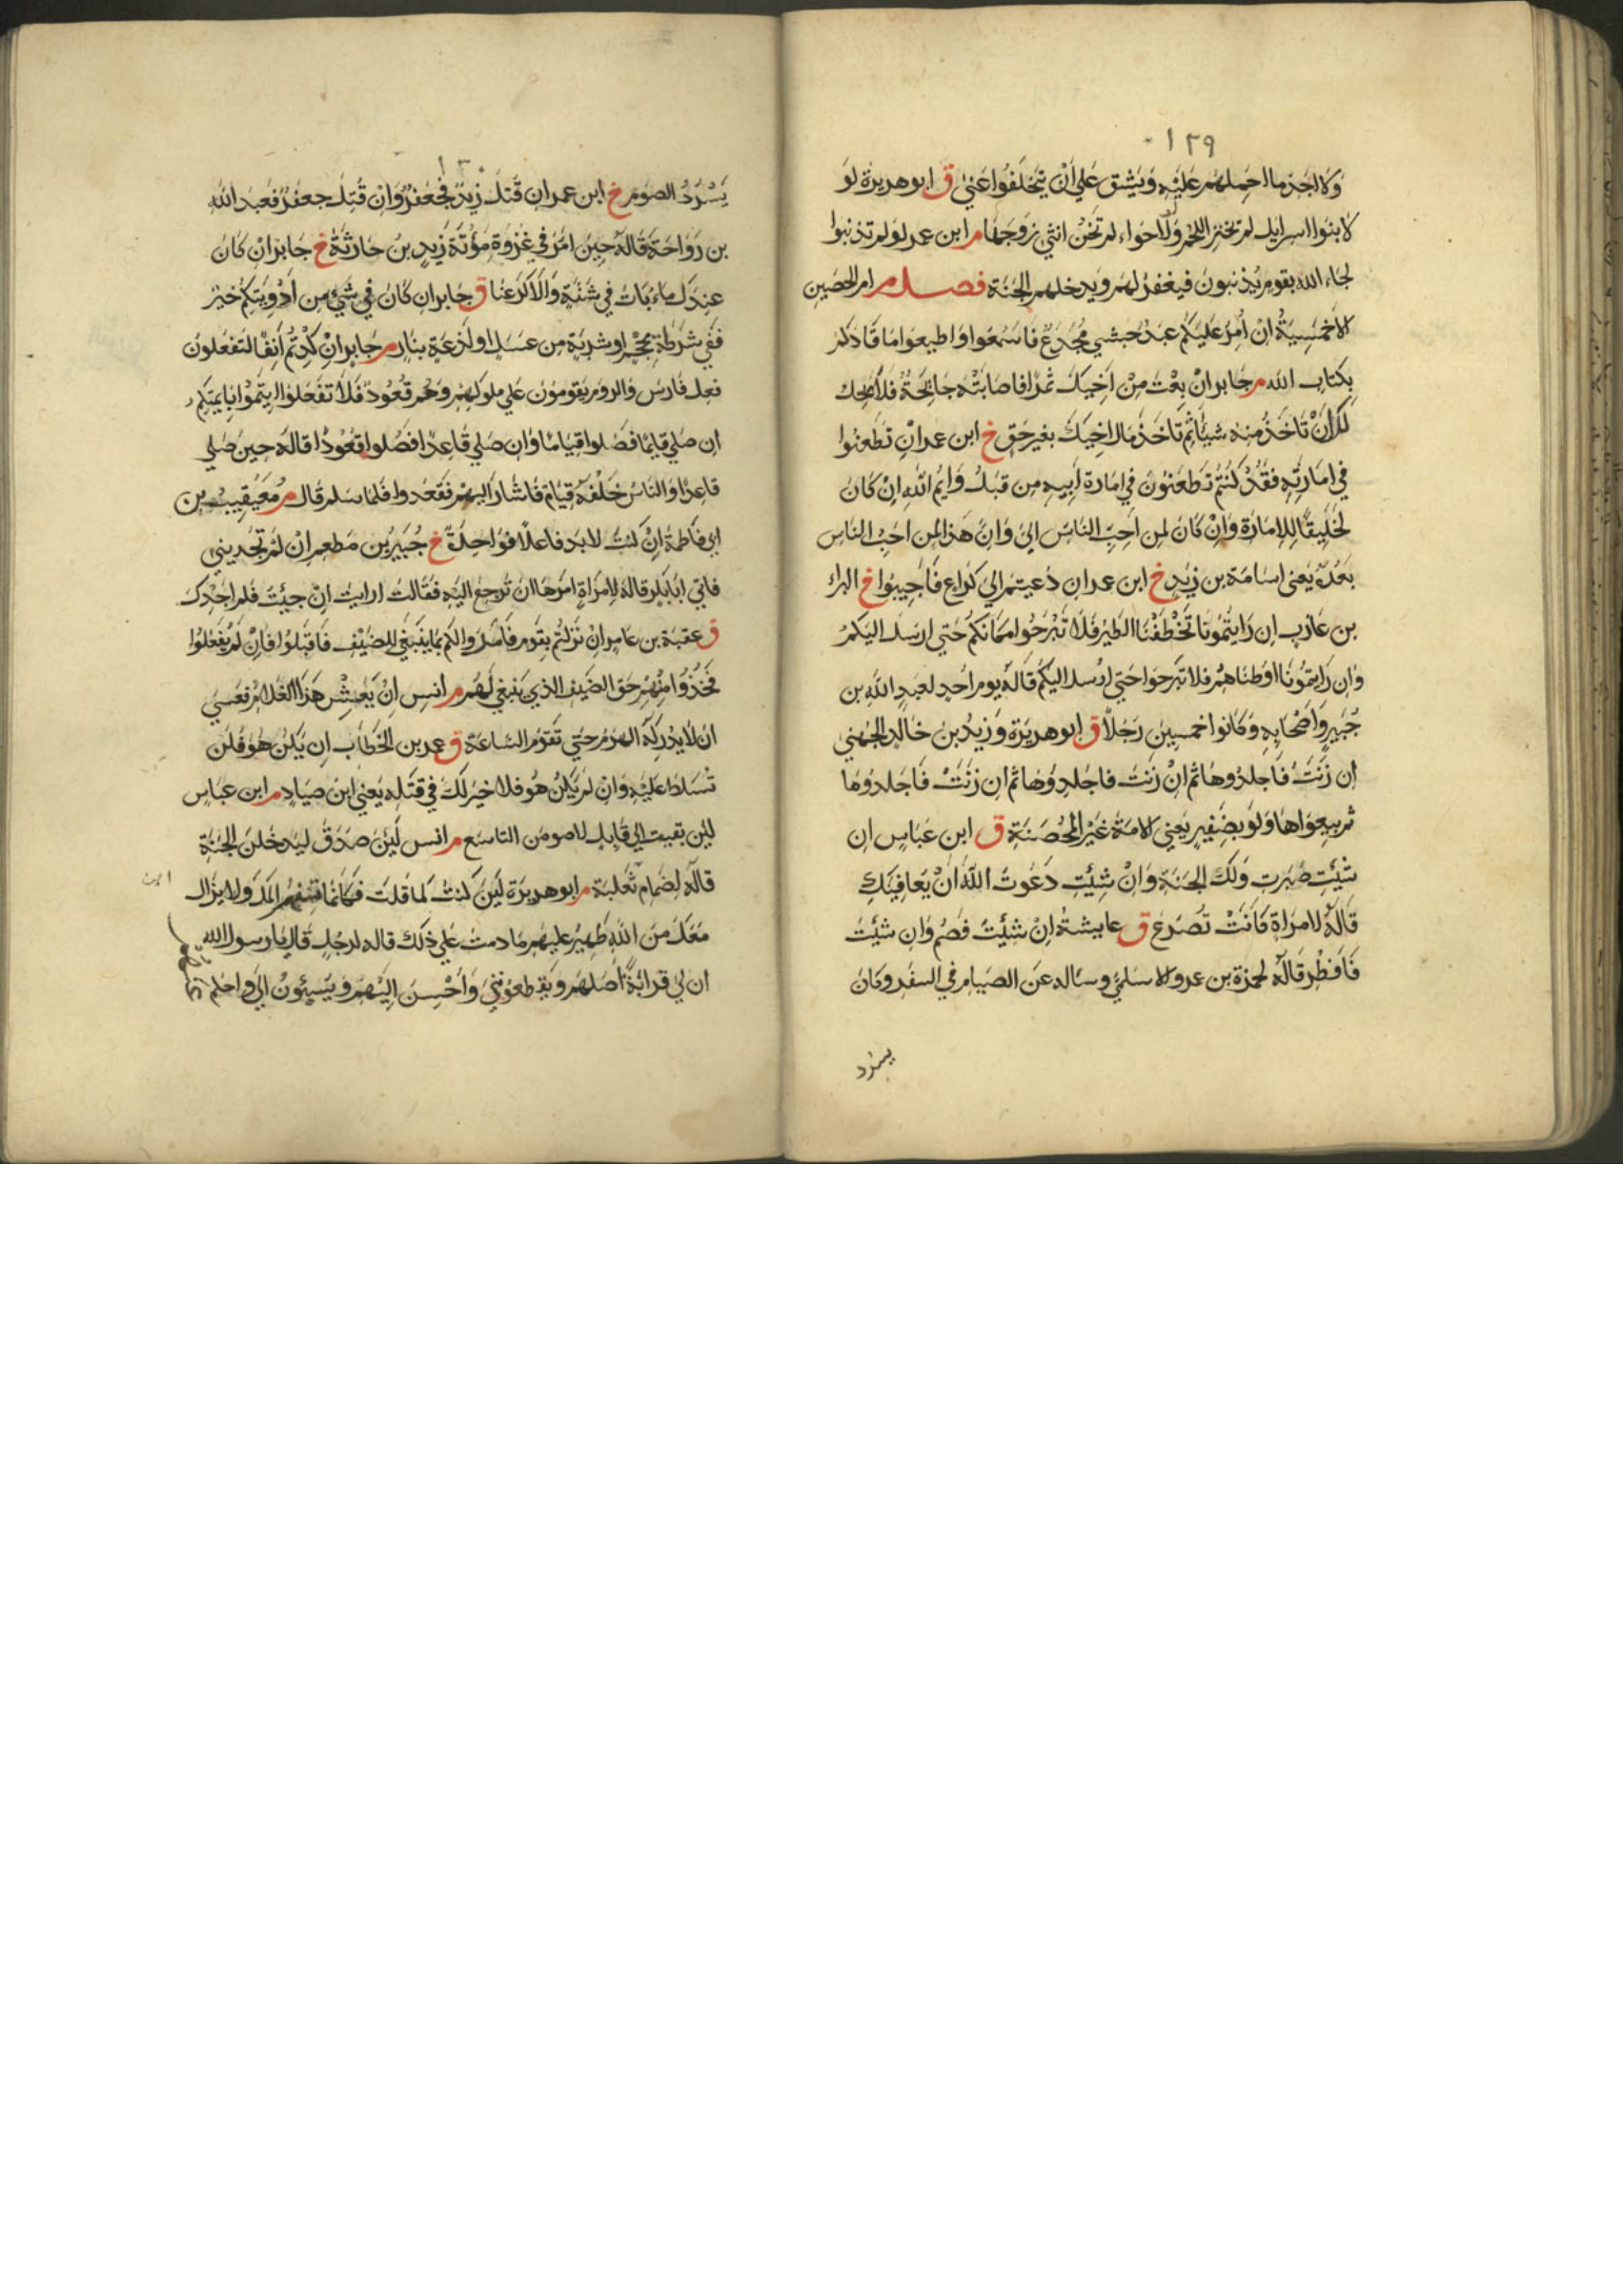 ١٢٩
ولا اجد ما احملهم عليه ويشق علي ان يتخلفوا عني ق ابو هريرة لو
لا بنوا اسرايل لم تختز اللحم ولولا حواء لم تخن انثي زوجها م ابن عمر لو لم تذنبوا
لجاء الله بقوم يذنبون فيغفر لهم ويدخلهم الجنة فصل م ام الحصين
الاخمسية ان امر عليكم عبد حبشي مجدع فاسمعوا واطيعوا ما قادكم
بكتاب الله م جابر ان بعت من اخيك ثمرا فاصابته جايحة فلا يحل
لك ان تاخذ منه شيئا ثم تاخذ مال اخيك بغير حق خ ابن عمر ان تطعنوا
في امارته فقد كنتم تطعنون في امارة ابيه من قبل وايم الله ان كان
لخليقا للامارة وان كان لمن احب الناس الي وان هذا لمن احب الناس
بعده يعني اسامة بن زيد خ ابن عمر ان دعيتم الي كراع فاجيبوا خ البراء
بن عازب ان رايتمونا تخطفنا الطير فلا تبرحوا مكانكم حتي ارسل اليكم
وان رايتمونا اوطناهم فلا تبرحوا حتي ارسل اليكم قاله يوم احد لعبد الله بن
جبير واصحابه وكانوا خمسين رجلا ق ابو هريرة وزيد بن خالد الجهني
ان زنت فاجلدوها ثم ان زنت فاجلدوها ثم ان زنت فاجلدوها
ثم بيعواها ولو بضفير يعني الامة غير المحصنة ق ابن عباس ان
شئت صبرت ولك الجنة وان شئت دعوت الله ان يعافيك
قاله لامراة كانت تصرع ق عايشة ان شئت فصم وان شئت
فافطر قاله لحمزة بن عمرو الاسلمي وساله عن الصيام في السفر وكان
يسرد
يسرد الصوم خ ابن عمر ان قتل زيد فجعفر وان قتل جعفر فعبد الله
بن رواحة قاله حين امر في غزوة مؤتة زيد بن حارثة خ جابر ان كان
عندك ماء بات في شنة والا كرعنا ق جابر ان كان في شيء من ادويتكم خير
ففي شرطة محجم او شربة من عسل او لذعة بنار م جابر ان كدتم انفا لتفعلون
فعل فارس والروم يقومون علي ملوكهم وهم قعود فلا تفعلوا ايتموا بايمتكم
ان صلي قايما فصلوا قياما وان صلي قاعدا فصلوا قعودا قاله حين صلي
قاعدا والناس خلفه قيام فاشار اليهم فقعدوا فلما سلم قال م معيقيب بن
ابي فاطمة ان كنت لا بد فاعلا فواحدة خ جبير بن مطعم ان لم تجديني
فاتي ابا بكر قاله لامراة امرها ان ترجع اليه فقالت ارايت ان جيئت فلم اجدك
ق عقبة بن عامر ان نزلتم بقوم فامروا لكم بما ينبغي للضيف فاقبلوا فان لم يفعلوا
فخذوا منهم حق الضيف الذي ينبغي لهم م انس ان يعش هذا الغلام فعسي
ان لا يدركه الهرم حتي تقوم الساعة ق عمر بن الخطاب ان يكن هو فلن
تسلط عليه وان لم يكن هو فلا خير لك في قتله يعني ابن صياد م ابن عباس
لئن بقيت الي قابل لاصومن التاسع م انس لئن صدق ليدخلن الجنة
قاله لضمام ثعلبة م ابو هريرة لئن كنت كما قلت فكانما تسفهم المل ولا يزال
معك من الله ظهير عليهم ما دمت علي ذلك قاله لرجل قال يا رسول الله
ان لي قرابة اصلهم ويقطعونني واحسن اليهم ويسيئون الي واحلم